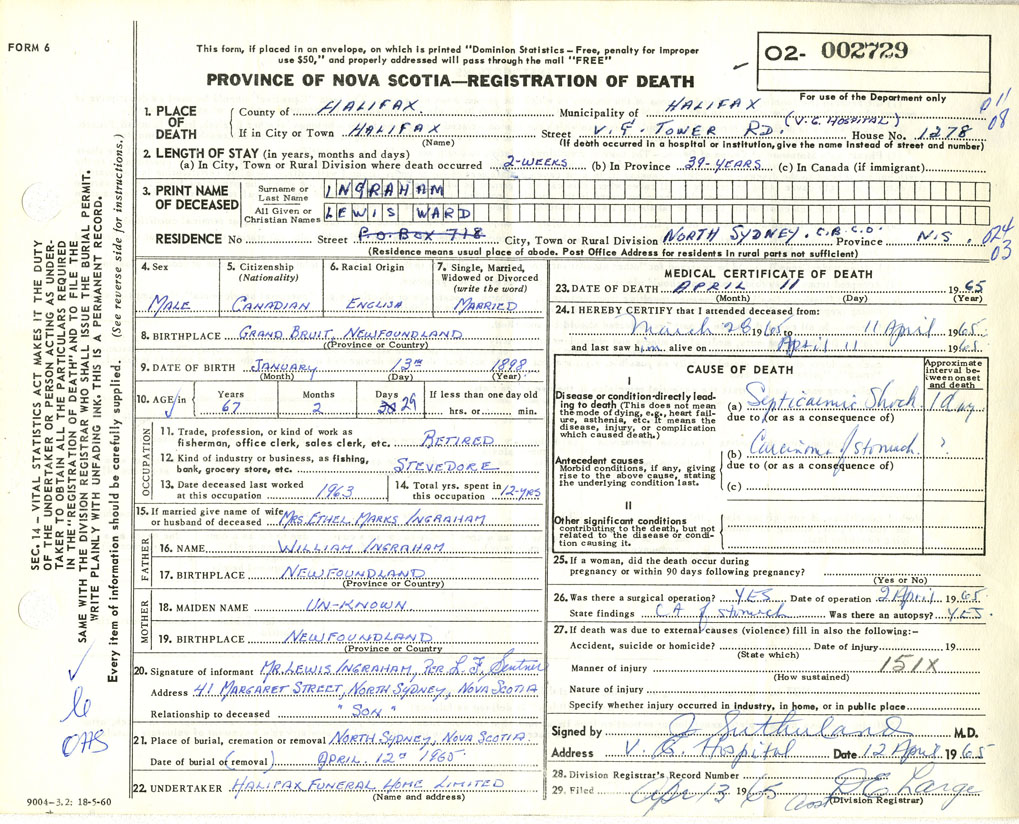 FORM 6
This form, if placed in an envelope, on which is printed "Dominion Statistics – Free, penalty for improper
use $50," and properly addressed will pass through the mail "FREE"
PROVINCE OF NOVA SCOTIA—REGISTRATION OF DEATH
O2- 002729
For use of the Department only
SEC. 14 – VITAL STATISTICS ACT MAKES IT THE DUTY
OF THE UNDERTAKER OR PERSON ACTING AS UNDER-
TAKER TO OBTAIN ALL THE PARTICULARS REQUIRED
IN THE "REGISTRATION OF DEATH" AND TO FILE THE
SAME WITH THE DIVISION REGISTRAR WHO SHALL ISSUE THE BURIAL PERMIT.
WRITE PLAINLY WITH UNFADING INK. THIS IS A PERMANENT RECORD.
Every item of information should be carefully supplied. (See reverse side for instructions.)
1. PLACE OF DEATH
County of HALIFAX Municipality of HALIFAX
(V.G. HOSPITAL)
If in City or Town HALIFAX Street V.G. TOWER RD. House No. 1278
(Name) (If death occurred in a hospital or institution, give the name instead of street and number)
011
08
2. LENGTH OF STAY (in years, months and days)
(a) In City, Town or Rural Division where death occurred 2-WEEKS (b) In Province 39-YEARS (c) In Canada (if immigrant)
3. PRINT NAME OF DECEASED
Surname or Last Name INGRAHAM
All Given or Christian Names LEWIS WARD
RESIDENCE No Street P.O. BOX 718 City, Town or Rural Division NORTH SYDNEY. C.B. CO. Province N.S.
(Residence means usual place of abode. Post Office Address for residents in rural parts not sufficient)
024
03
4. Sex MALE
5. Citizenship (Nationality) CANADIAN
6. Racial Origin ENGLISH
7. Single, Married, Widowed or Divorced (write the word) MARRIED
8. BIRTHPLACE GRAND BRUIT, NEWFOUNDLAND
(Province or Country)
9. DATE OF BIRTH JANUARY 13TH 1898
(Month) (Day) (Year)
10. AGE in Years 67 Months 2 Days 29 If less than one day old hrs. or min.
OCCUPATION
11. Trade, profession, or kind of work as
fisherman, office clerk, sales clerk, etc. RETIRED
12. Kind of industry or business, as fishing,
bank, grocery store, etc. STEVEDORE
13. Date deceased last worked
at this occupation 1963
14. Total yrs. spent in
this occupation 12-YRS
15. If married give name of wife
or husband of deceased MRS ETHEL MARKS INGRAHAM
FATHER
16. NAME WILLIAM INGRAHAM
17. BIRTHPLACE NEWFOUNDLAND
(Province or Country)
MOTHER
18. MAIDEN NAME UN-KNOWN
19. BIRTHPLACE NEWFOUNDLAND
(Province or Country
20. Signature of informant MR. LEWIS INGRAHAM, PER L. F.
Address 41 MARGARET STREET, NORTH SYDNEY, NOVA SCOTIA
Relationship to deceased "SON"
21. Place of burial, cremation or removal NORTH SYDNEY, NOVA SCOTIA.
Date of burial or (removal) APRIL. 12th 1965
22. UNDERTAKER HALIFAX FUNERAL HOME LIMITED
(Name and address)
9004–3.2: 18-5-60
MEDICAL CERTIFICATE OF DEATH
23. DATE OF DEATH APRIL 11 1965
(Month) (Day) (Year)
24. I HEREBY CERTIFY that I attended deceased from:
March 28 1965 to 11 April 1965
and last saw him alive on April 11 1965
CAUSE OF DEATH
Approximate interval between onset and death
I
Disease or condition directly leading to death (This does not mean
the mode of dying, e.g., heart failure, asthenia, etc. It means the
disease, injury, or complication
which caused death.)
(a) Septicaemic Shock 1 day
due to (or as a consequence of)
Antecedent causes
Morbid conditions, if any, giving
rise to the above cause, stating
the underlying condition last.
(b) Carcinoma of stomach. ?
due to (or as a consequence of)
(c)
II
Other significant conditions
contributing to the death, but not
related to the disease or condition causing it.
25. If a woman, did the death occur during
pregnancy or within 90 days following pregnancy?
(Yes or No)
26. Was there a surgical operation? YES Date of operation 2 April 1965
State findings CA of stomach Was there an autopsy? YES.
27. If death was due to external causes (violence) fill in also the following:–
Accident, suicide or homicide? Date of injury 19
(State which)
Manner of injury 151X
(How sustained)
Nature of injury
Specify whether injury occurred in industry, in home, or in public place
Signed by J Sutherland M.D.
Address V. G. Hospital Date 12 April 1965
28. Division Registrar's Record Number
29. Filed Apr 13 1965 D E Large
(Division Registrar)